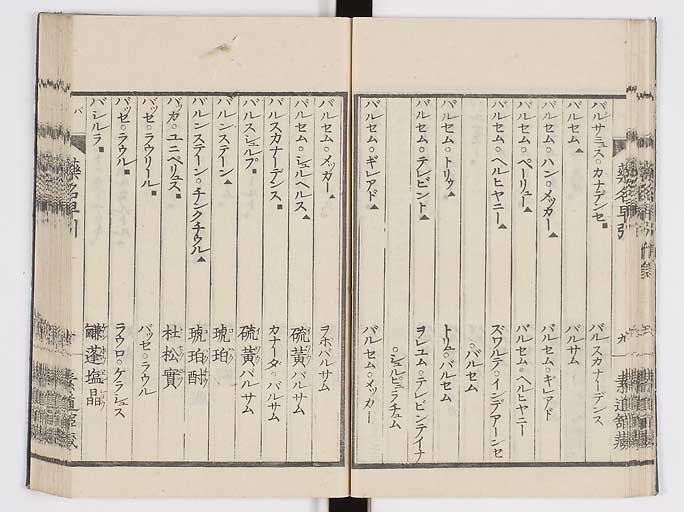 藥名早引
バルサミュス○カナデンセ■ バルスカナーデンス
バルセム▲ バルサム
バルセム○ハン○メッカー▲ バルセム○ギレアド
バルセム○ペーリュー▲ バルセム○ヘルヒヤニー
バルセム○ヘルヒヤニー▲ ズワルテ○インデアーンセ
○バルセム
バルセム○トリュ▲ トリュ○バルセム
バルセム○テレビント▲ ヲレユム○テレビンテイナ
○シュルピュラチュム
バルセム○ギレアド▲ バルセム○メッカー
素道舘藏
バルセム○メッカー▲ ヲポバルサム
バルセム○シュルヘルス▲ 硫黃バルサム
バルスカナーデンス■ カナータ○バルサム
バルスシュルプ■ 硫黃バルサム
バルンステーン▲ 琥珀
バルンステーン○チンクチウル▲ 琥珀酊
バッカ○ユニペリュス■ 杜松實
バッゼ○ラウリール■ バッゼ○ラウル
バッゼ○ラウル■ ラウロ○ケラシュス
バシルラ■ 鹻蓬塩晶
藥名早引
素道舘藏